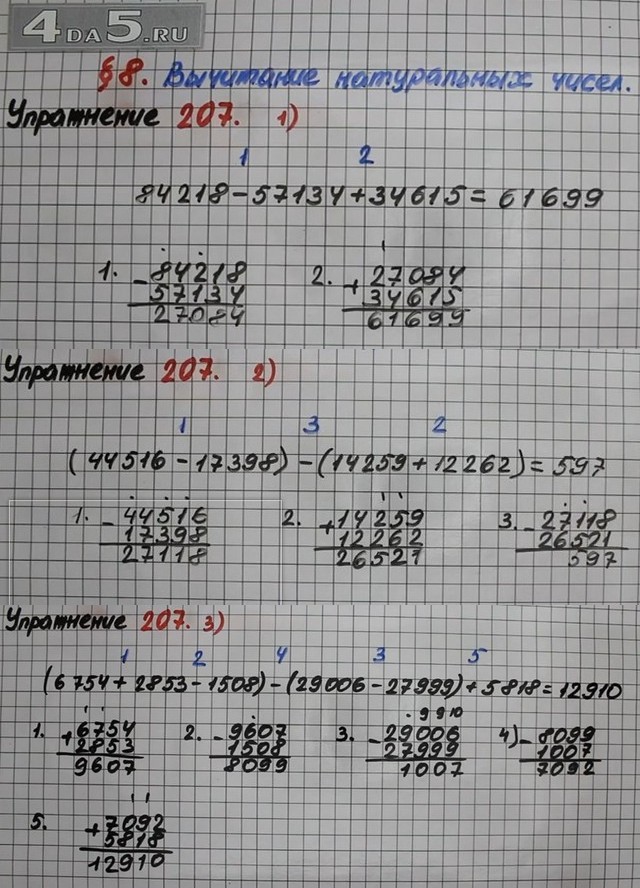 4DA5.RU
§ 8. Вычитание натуральных чисел.
Упражнение 207. 1)
1 2
84218-57134+34615=61699
1. -84218 2. +27084
57134 34615
27084 61699
Упражнение 207. 2)
1 3 2
(44516-17398)-(14259+12262)=597
1. -44516 2. +14259 3. -27118
17398 12262 26521
27118 26521 597
Упражнение 207. 3)
1 2 4 3 5
(6754+2853-1508)-(29006-27999)+5818=12910
9 9 10
1. +6754 2. -9607 3. -29006 4) -8099
2853 1508 27999 1007
9607 8099 1007 7092
5. +7092
5818
12910